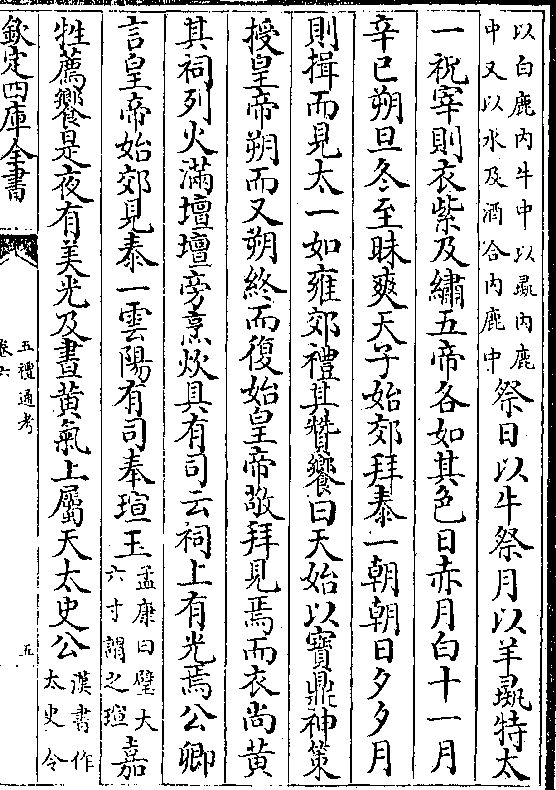 以白鹿内牛中以彘内鹿
中又以水及酒合内鹿中
祭日以牛祭月以羊彘特太
一祝宰則衣紫及繡五帝各如其色日赤月白十一月
辛巳朔旦冬至昧爽天子始郊拜泰一朝朝日夕夕月
則揖而見太一如雍郊禮其贊饗曰天始以寳鼎神策
授皇帝朔而又朔終而復始皇帝敬拜見焉而衣尚黄
其祠列火滿壇壇旁烹炊具有司云祠上有光焉公卿
言皇帝始郊見泰一雲陽有司奉瑄玉
孟康曰璧大
六寸謂之瑄
嘉
牲薦饗是夜有美光及晝黄氣上屬天太史公
漢書作
太史令
欽定四庫全書
五禮通考
卷六
五